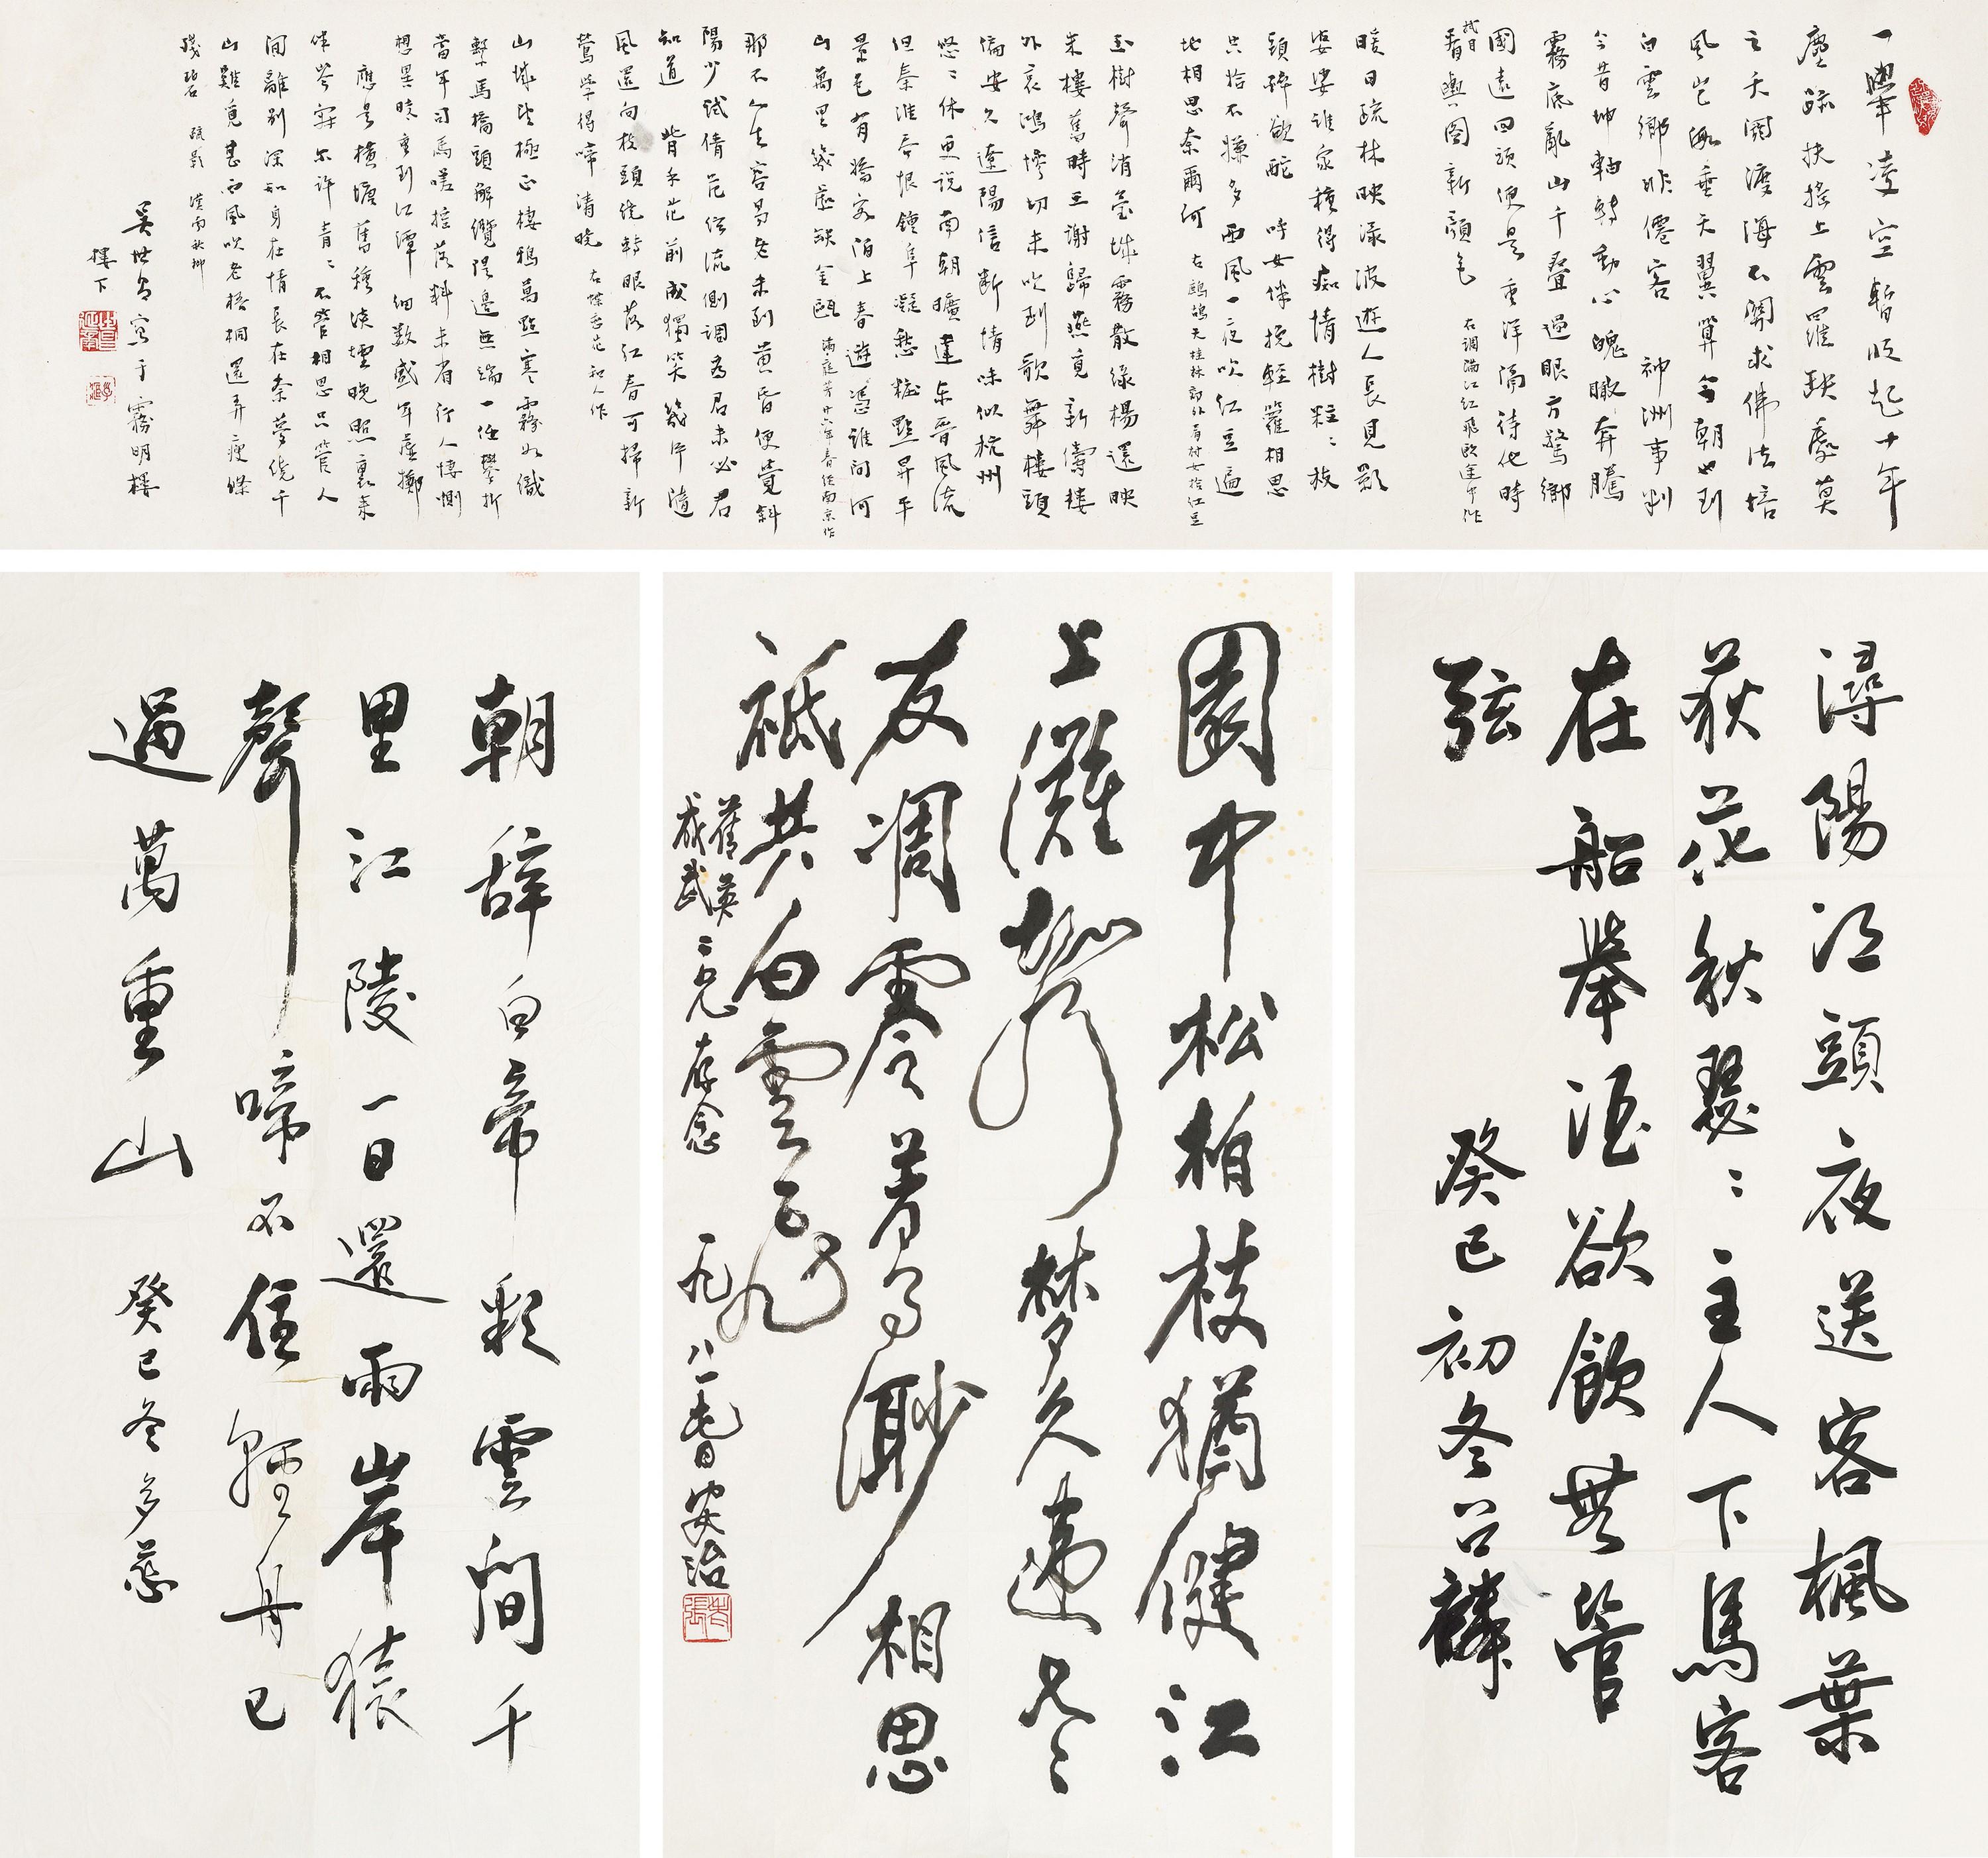 一舉凌空暫收起十年
塵蹤扶搖上雲羅
之天闊渡海不關求佛法培
風豈為垂天翼算今朝也到
白雲鄉非僊客 神洲事判
今昔坤軸轉動心魄瞰奔騰
霧底亂山千叠過眼方驚鄉
國遠回頭便是重洋隔待他時
看輿圖新顏色 右調滿江紅飛歐途中作
暖日疏林映淥波遊人長見影
婆娑誰家種得癡情樹粒〻枝
頭碎欲酡 呼女伴挽輕籮相思
只拾不嫌多西風一夜吹紅豆遍
地相思奈爾何 右鷓鴣天桂林郊外有村女拾紅豆
玉樹聲消臺城霧散綠楊還映
朱樓舊時王謝歸燕覓新儔樓
外哀鴻慘切未吹到歌舞樓頭
偏安久遼陽信斷情味似杭州
悠〻休更說南朝曠達東晉風流
但秦淮吞恨鍾阜凝愁粧點昇平
景色有驕客陌上春遊憑誰問河
山萬里幾處缺金甌 滿庭芳廿六年春 南京作
那不人生容易老未到黃昏便覺斜
陽少試倩花 流側調為君未必君
知道 背手花前成獨笑幾片隨
風還向枝頭繞轉眼落紅春可掃新
鶯學得啼清曉 右蝶戀花和人作
山城望極正棲鴉萬點寒霧如織
繫馬橋頭解纜隄邊無端一任攀折
當年司馬嗟搖落料未省行人悽惻
想異曉重到江潭 細數盛年虛擲
應是橫塘舊種淡煙晚照裏來
伴岑寂尔許青〻不管相思只管人
間離別深知身在情長在奈夢繞千
山難覓甚西風吹老梧桐還弄瘦條
殘碧 疏影 漢南秋柳
吳世昌寫于霧明樓
樓下
潯陽江頭夜送客楓葉
荻花秋瑟〻主人下馬客
在船舉酒欲飲無管
弦 癸巳初冬公麟
園中松柏枝猶健江
上灘聲夢久違老
友凋零音問渺相思
祇共白雲飛
英成武二兄存念 一九八一春日 安治
朝辭白帝彩雲間千
里江陵一日還兩岸猿
聲啼不住輕舟已
過萬重山 癸巳冬多慈